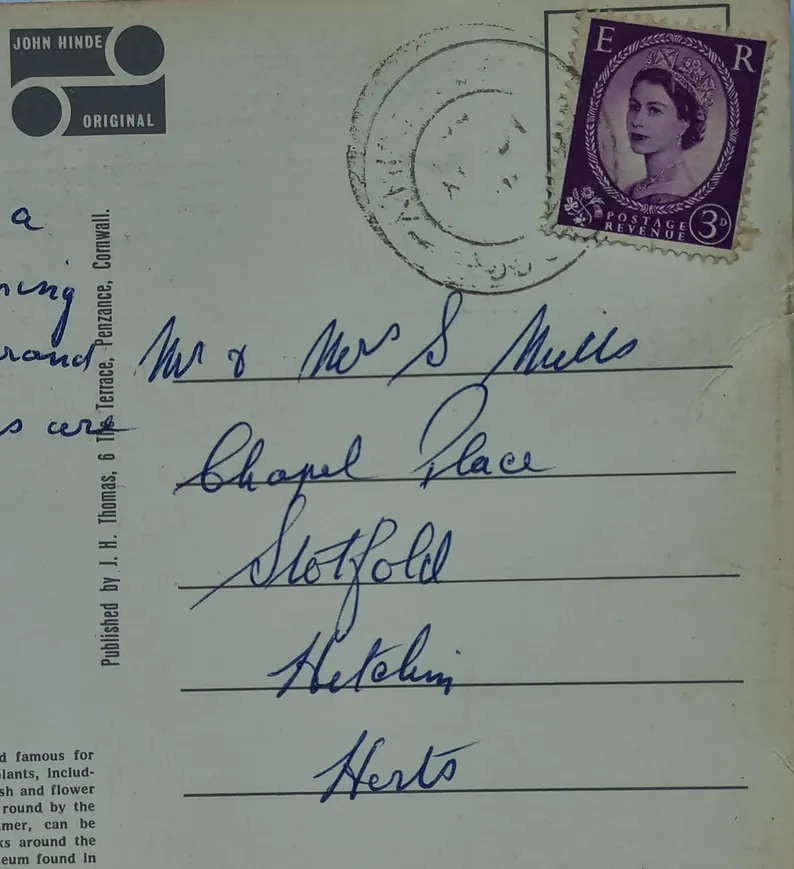 JOHN HINDE
ORIGINAL
E R
POSTAGE
REVENUE
3D
a
ning
rand
s are
Published by J. H. Thomas, 6 The Terrace, Penzance, Cornwall.
Mr & Mrs S Mills
Chapel Place
Stotfold
Hitchin
Herts
d famous for
plants, includ-
sh and flower
round by the
mer, can be
ks around the
eum found in